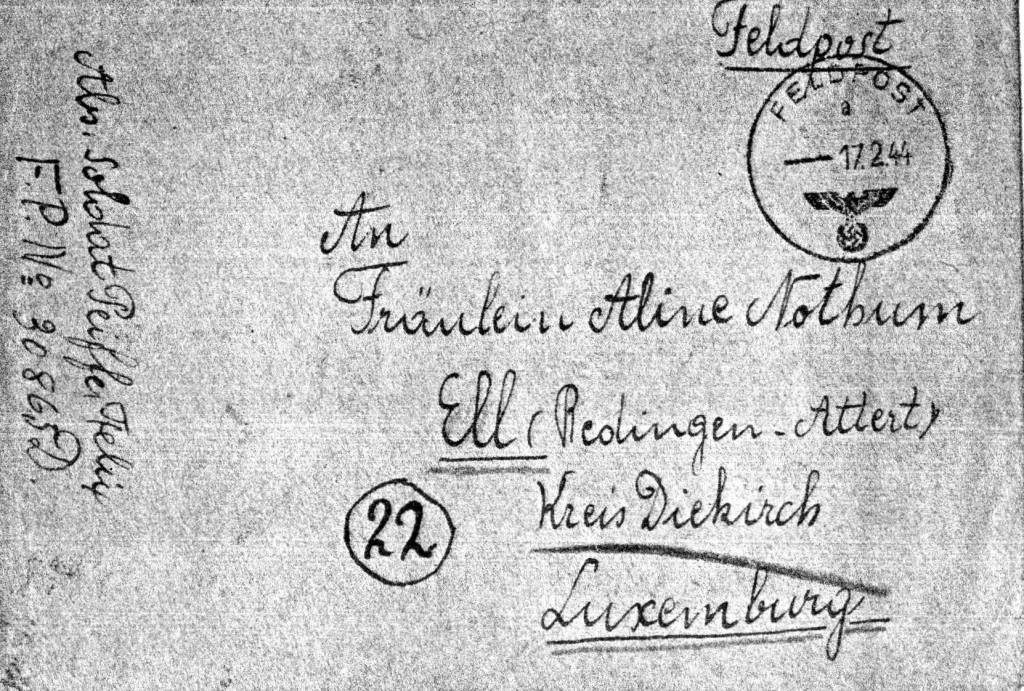 Feldpost
FELDPOST
a
17.2.44
An
Fräulein Aline Nothum
Ell (Redingen-Attert)
Kreis Diekirch
22
Luxemburg
Abs. Soldat Peiffer Felix
F.P. No 30865 D.